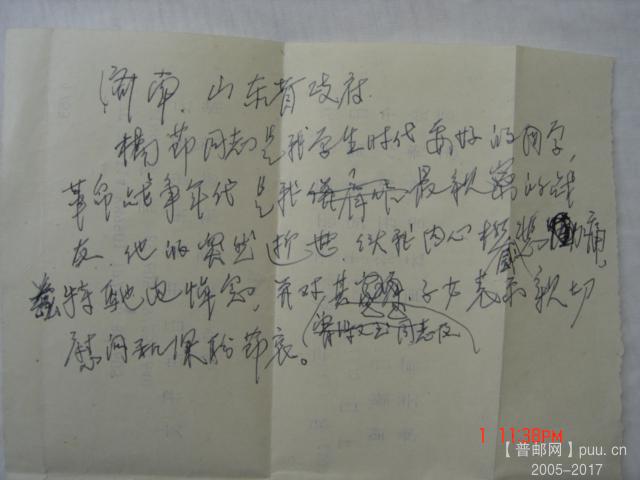 济南,山东省政府.
楊节同志是我学生时代要好的同学,
革命战争年代是我最親密的战
友.他的突然逝世.使我内心极感悲痛,
特馳电悼念,并对其子女表示親切
同志及
慰问和保盼节哀。
1 11:38PM
【普邮网】puu.cn
2005-2017